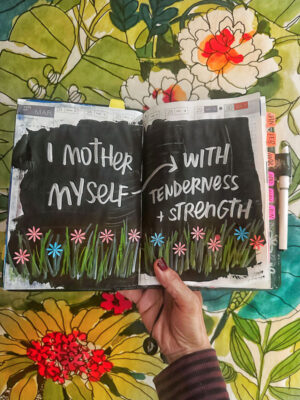 I MOTHER
MYSELF →
WITH
TENDERNESS
+ STRENGTH